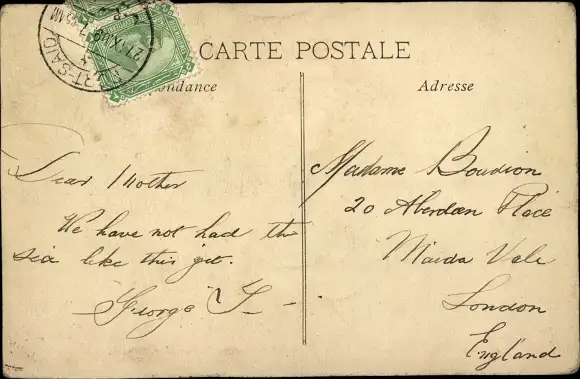 PORT-SAID
CARTE POSTALE
ondance
Adresse
Dear Mother
We have not had the
sea like this yet.
George
Madame Boudion
20 Aberdeen Place
Maida Vale
London
England